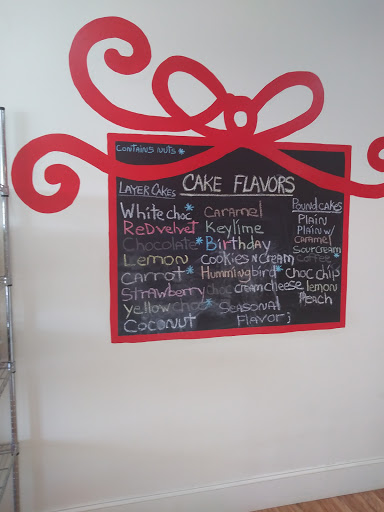 CONTAINS NUTS *
CAKE FLAVORS
LAYER CAKES
White choc *
Red velvet
Chocolate *
Lemon
Carrot *
Strawberry
Yellow choc *
Coconut
Caramel
Keylime
Birthday
Cookies N Cream
Hummingbird *
choc creamcheese
Seasonal
Flavor;
Pound cakes
Plain
Plain w/
caramel
Sour cream
Coffee *
choc chips
lemon
Peach